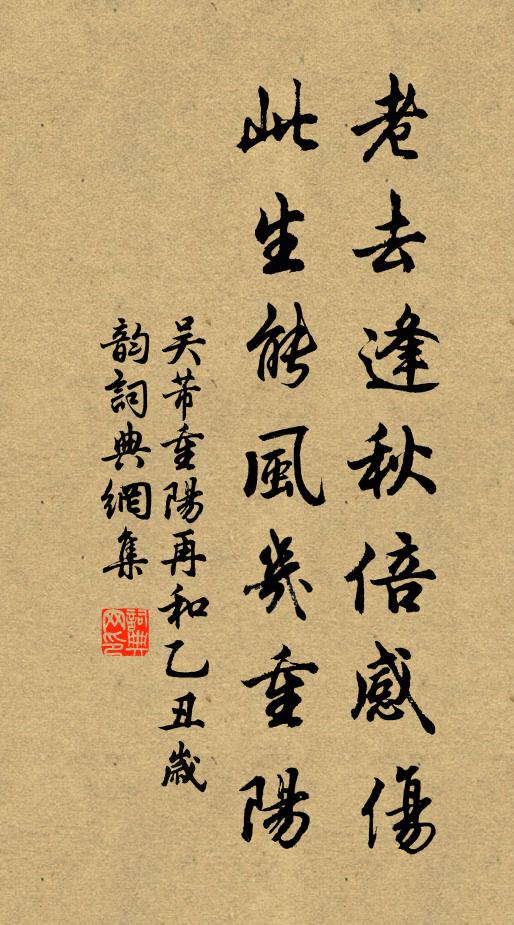 老去逢秋倍感傷
此生能風幾重陽
吳芾重陽再和乙丑歲
韵詞典網集
詞典
网印